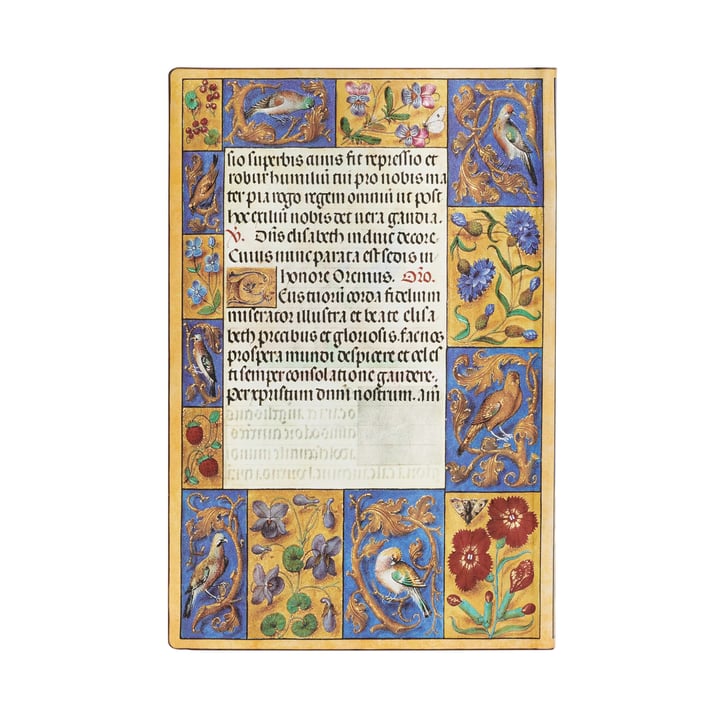 sio superbis cuius fit repressio et
robur humiliū tu pro nobis ma
ter pia rogo regem omniū ut post
hoc exiliū nobis det uera gaudia.
V. Dn̄s elisabeth induic decore.
Cuius nunc parata est sedis in
honore Oremus. Oro.
Deus tuorū corda fidelium
miserator illustra et beate elisa
beth precibus et gloriosis. fac nos
prospera mundi despicere et celes
ti semper consolatione gaudere.
Per xpristum dnm̄ nostrum. Am